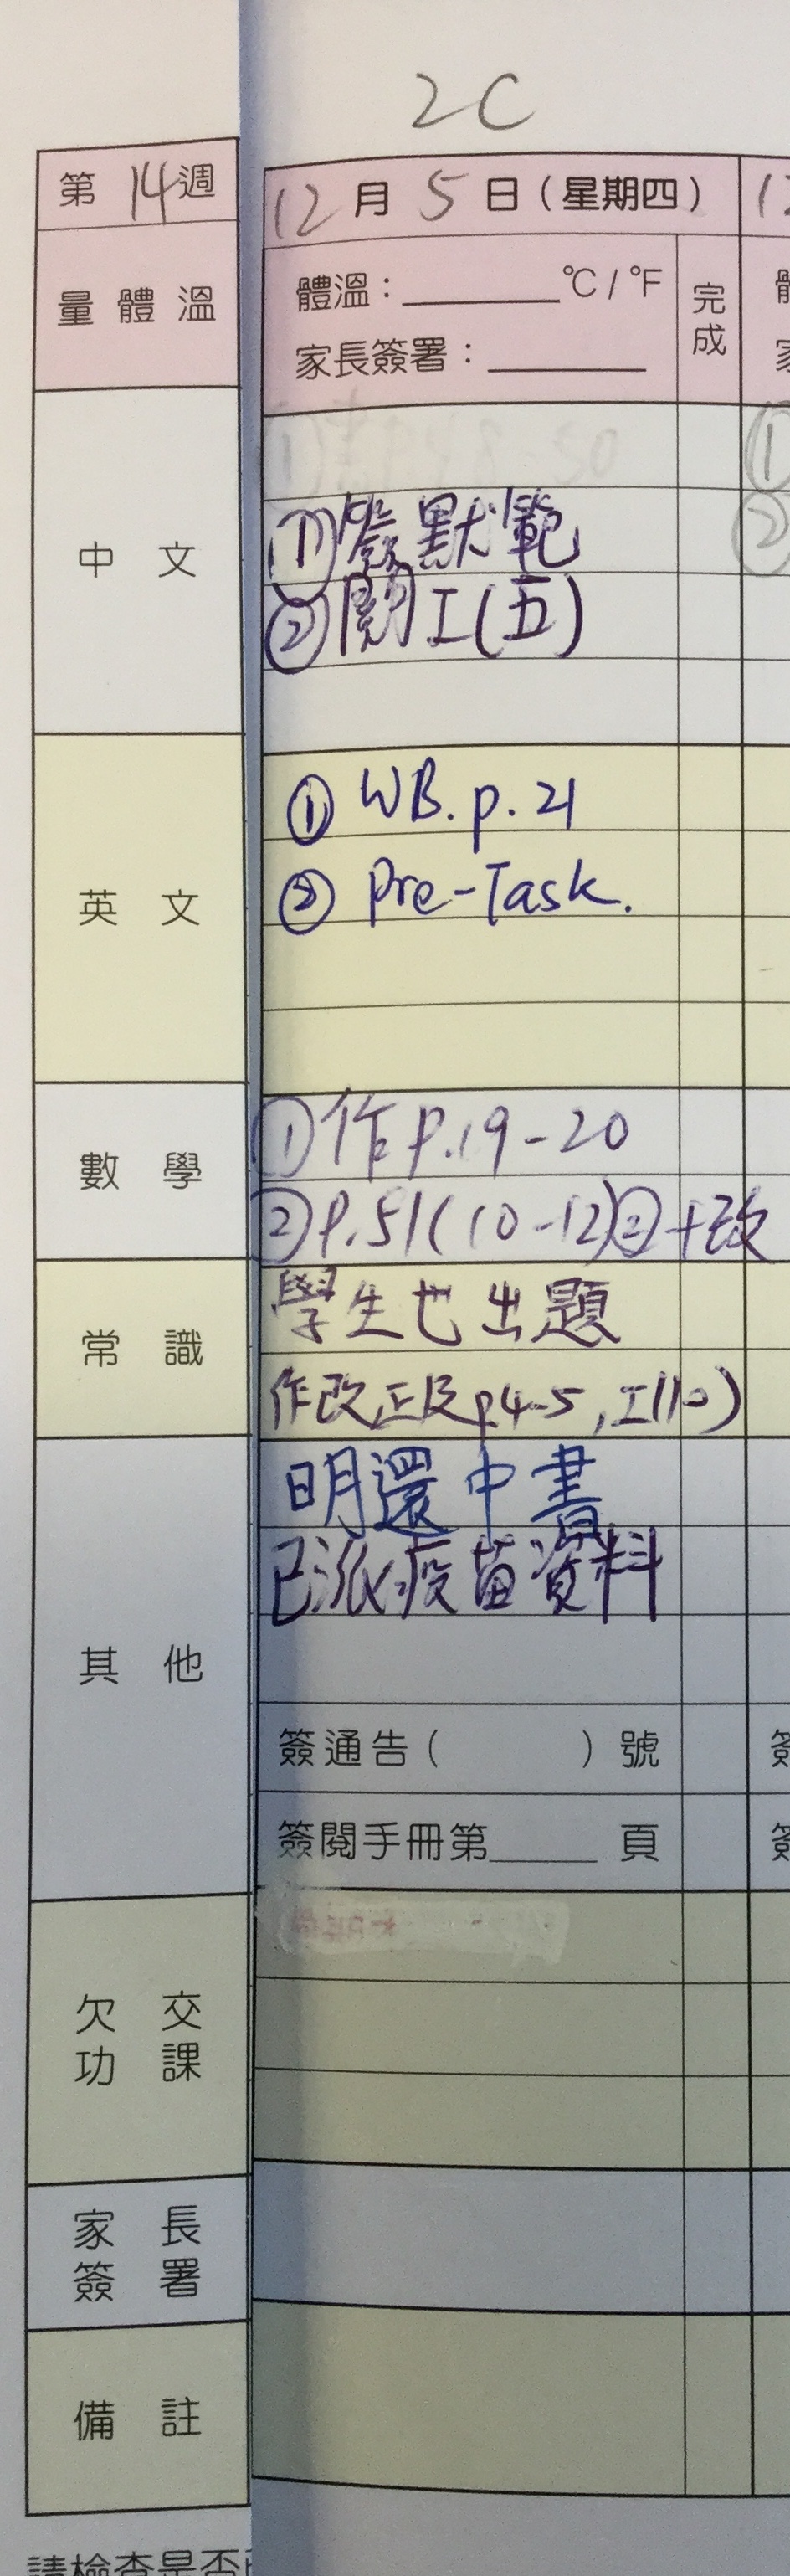 2C
第14週
12月5日(星期四)
量體溫
體溫：______℃/℉
家長簽署：______
完成
中文
①簽默範
②閱工(五)
英文
① WB.p.21
② Pre-Task.
數學
①作P.19-20
②P.51(10-12)②+改
常識
學生也出題
作改正及p.4-5,工(10)
其他
明還中書
已派疫苗資料
簽通告(      )號
簽閱手冊第______頁
欠交功課
家長簽署
備註
請檢查是否